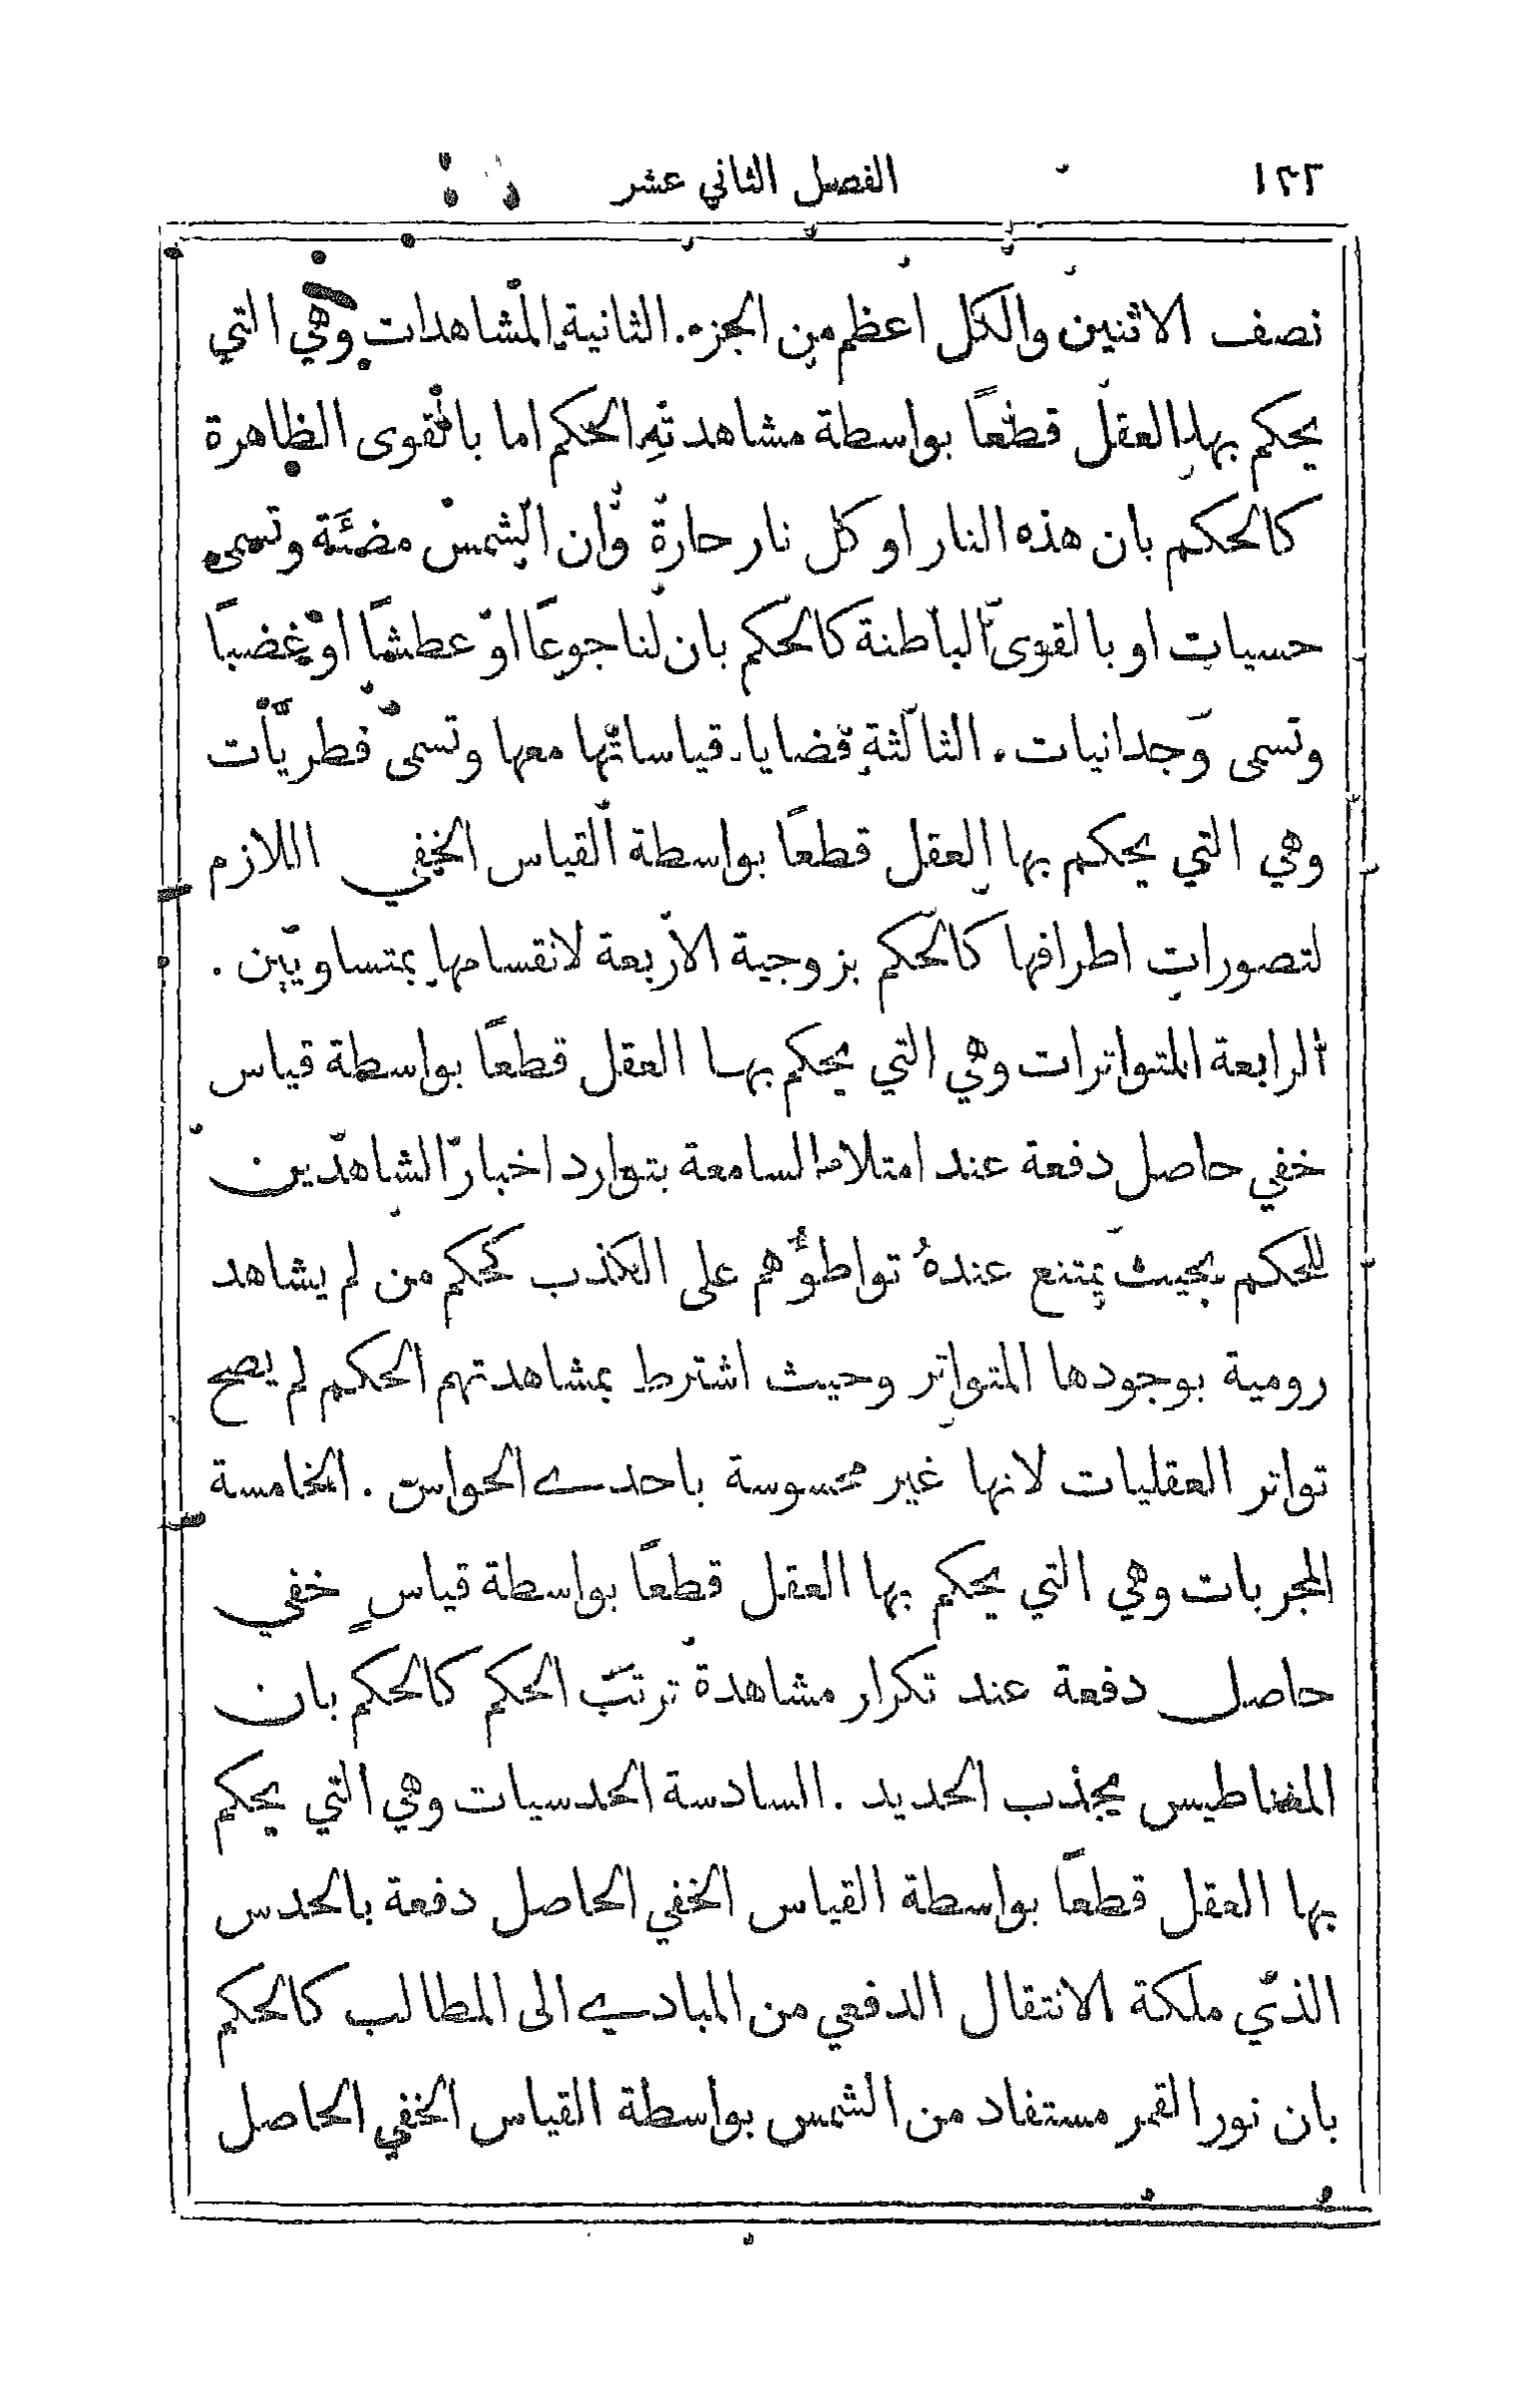 ١٢٢ الفصل الثاني عشر
نصف الاثنين والكل اعظم من الجزء. الثانية المشاهدات وهي التي
يحكم بها العقل قطعًا بواسطة مشاهدتهِ الحكم اما بالقوى الظاهرة
كالحكم بان هذه النار او كل نار حارة وان الشمس مضئَة وتسمى
حسيات او بالقوى الباطنة كالحكم بان لنا جوعًا او عطشًا او غضبًا
وتسمى وجدانيات. الثالثة قضايا قياساتها معها وتسمى فطريَّات
وهي التي يحكم بها العقل قطعًا بواسطة القياس الخفي اللازم
لتصورات اطرافها كالحكم بزوجية الاربعة لانقسامها بمتساويين.
الرابعة المتواترات وهي التي يحكم بها العقل قطعًا بواسطة قياس
خفي حاصل دفعة عند امتلاء السامعة بتوارد اخبار الشاهدين
للحكم بحيث يمتنع عندهُ تواطؤُهم على الكذب كحكم من لم يشاهد
رومية بوجودها المتواتر وحيث اشترط بمشاهدتهم الحكم لم يصح
تواتر العقليات لانها غير محسوسة باحدى الحواس. الخامسة
المجربات وهي التي يحكم بها العقل قطعًا بواسطة قياسٍ خفي
حاصل دفعة عند تكرار مشاهدة ترتب الحكم كالحكم بان
المغناطيس يجذب الحديد. السادسة الحدسيات وهي التي يحكم
بها العقل قطعًا بواسطة القياس الخفي الحاصل دفعة بالحدس
الذي ملكة الانتقال الدفعي من المبادي الى المطالب كالحكم
بان نور القمر مستفاد من الشمس بواسطة القياس الخفي الحاصل